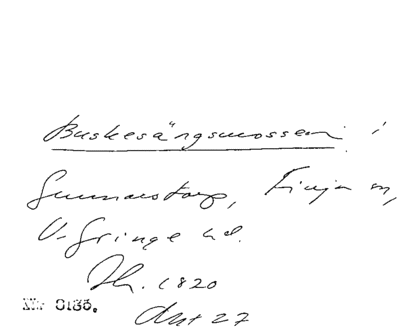 Buskesängsmossen i
Gunnarstorp, Finja sn,
V. Göinge hd.
Jh. 1820
Akt 27
Nr 0130.